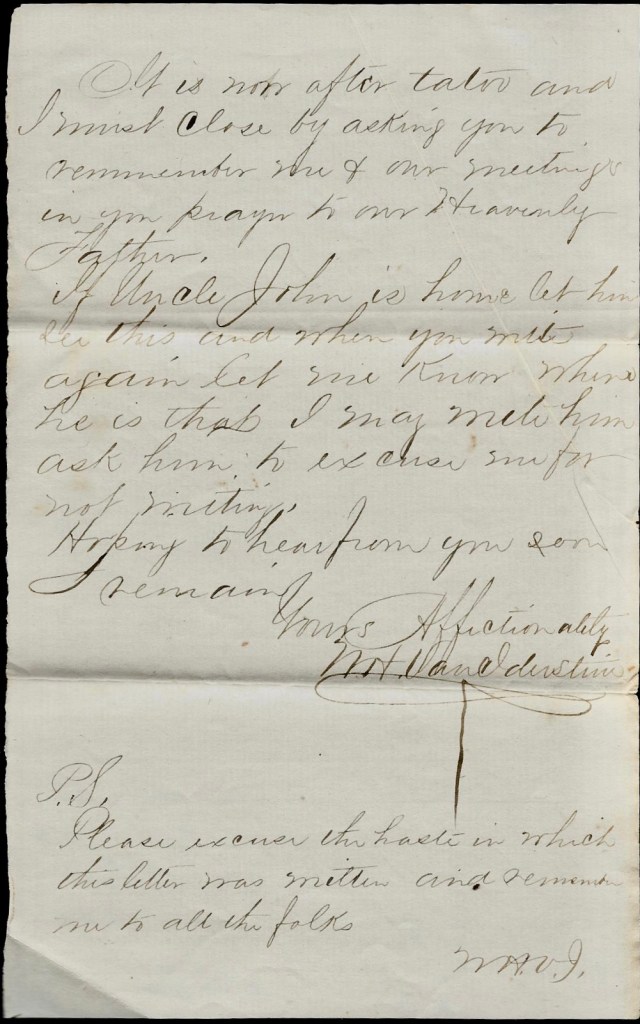 It is now after tatoo and
I must close by asking you to
remmember me & our meetings
in you prayr to our Heavenly
Father.
If Uncle John is home let him
see this and when you write
again let me know where
he is that I may write him
ask him to excuse me for
not writing.
Hoping to hear from you soon
I remain
Yours Affectionately
W.H. Van Iderstine
P.S.
Please excuse the haste in which
this letter was written and remember
me to all the folks
W.H.V.I.